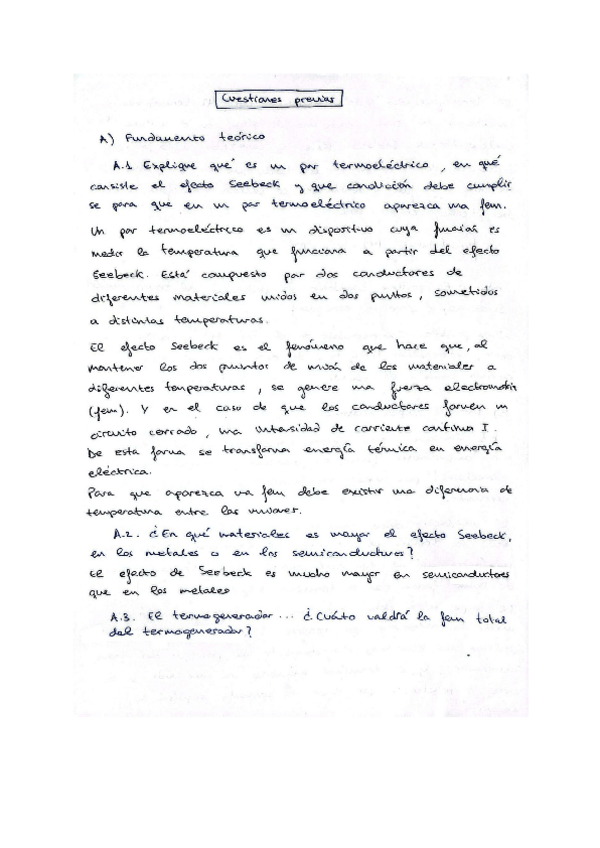 Cuestiones previas
A) Fundamento teórico
A.1 Explique qué es un par termoeléctrico, en qué
consiste el efecto Seebeck y que condición debe cumplir
se para que en un par termoeléctrico aparezca una fem.
Un par termoeléctrico es un dispositivo cuya función es
medir la temperatura que funciona a partir del efecto
Seebeck. Está compuesto por dos conductores de
diferentes materiales unidos en dos puntos, sometidos
a distintas temperaturas.
El efecto Seebeck es el fenómeno que hace que, al
mantener los dos puntos de unión de los materiales a
diferentes temperaturas, se genere una fuerza electromotriz
(fem). Y en el caso de que los conductores formen un
circuito cerrado, una intensidad de corriente continua I.
De esta forma se transforma energía térmica en energía
eléctrica.
Para que aparezca una fem debe existir una diferencia de
temperatura entre las uniones.
A.2. ¿En qué materiales es mayor el efecto Seebeck,
en los metales o en los semiconductores?
El efecto de Seebeck es mucho mayor en semiconductores
que en los metales
A.3. El termogenerador... ¿Cuánto valdrá la fem total
del termogenerador?